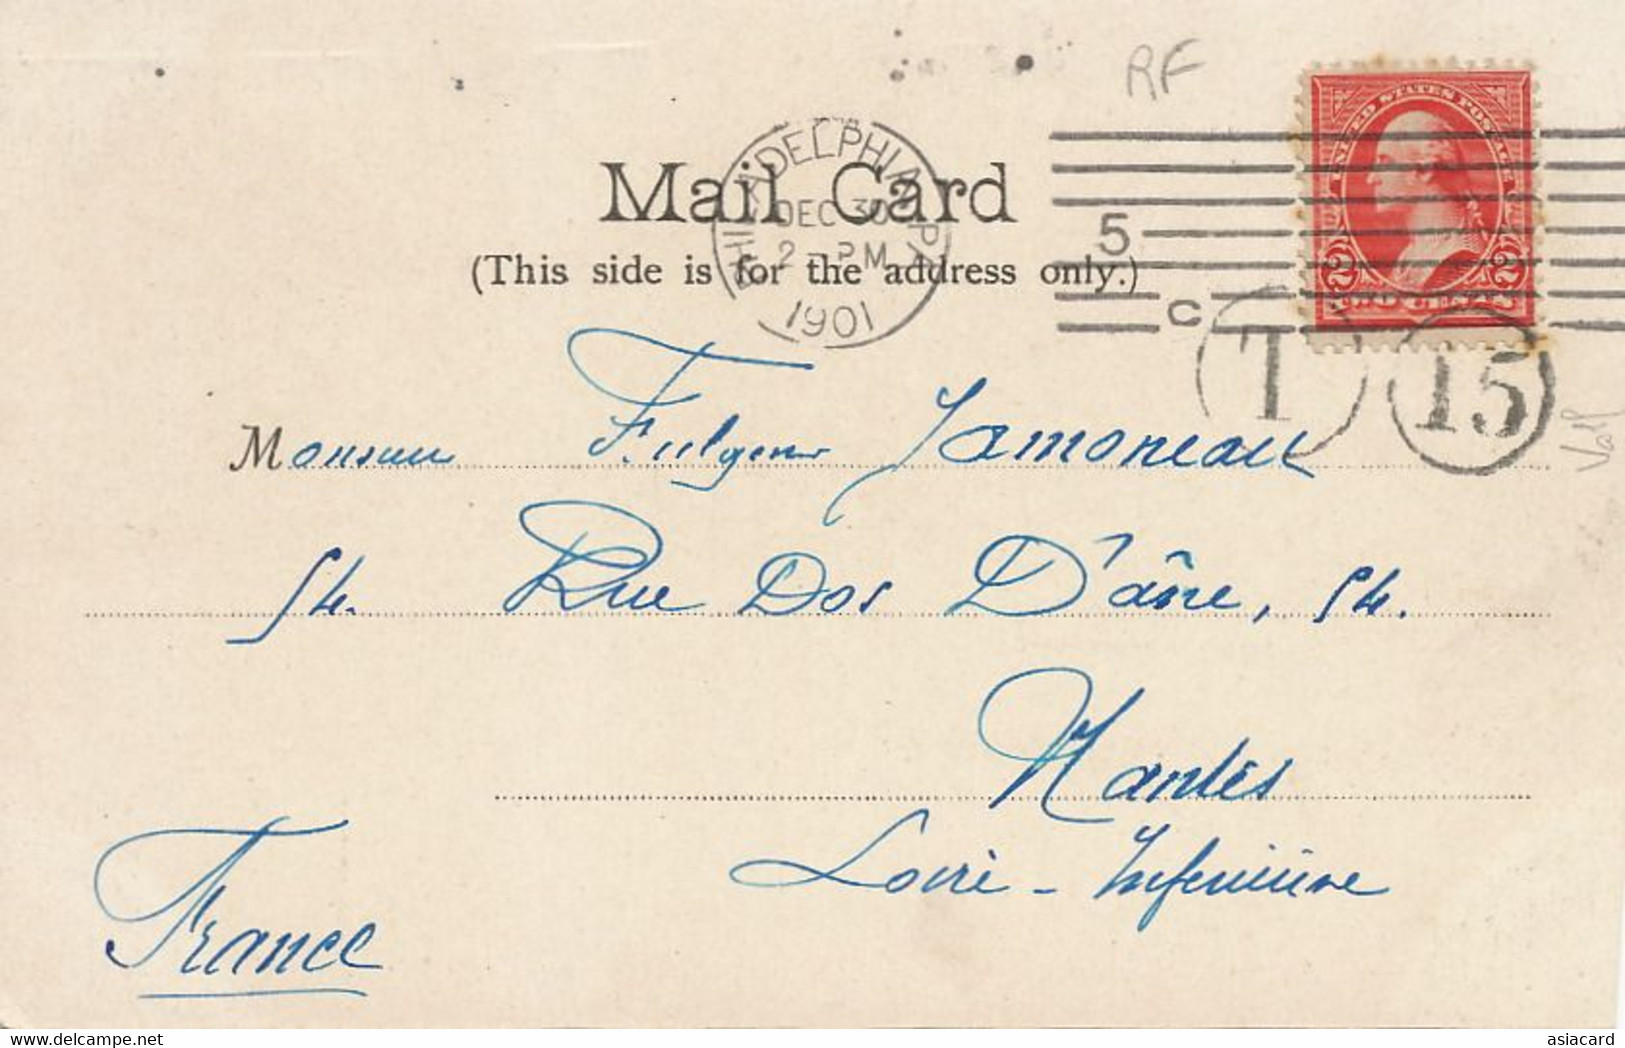 RF
UNITED STATES POSTAGE
Mail Card
PHILADELPHIA, PA.
DEC 30
2 - PM
1901
5
C
(This side is for the address only.)
2 TWO CENTS 2
T
15
Monsieur Fulgence Jamoneau
54. Rue Dos D'âne, 54.
Nantes
Loire - Inférieure
France
asiacard